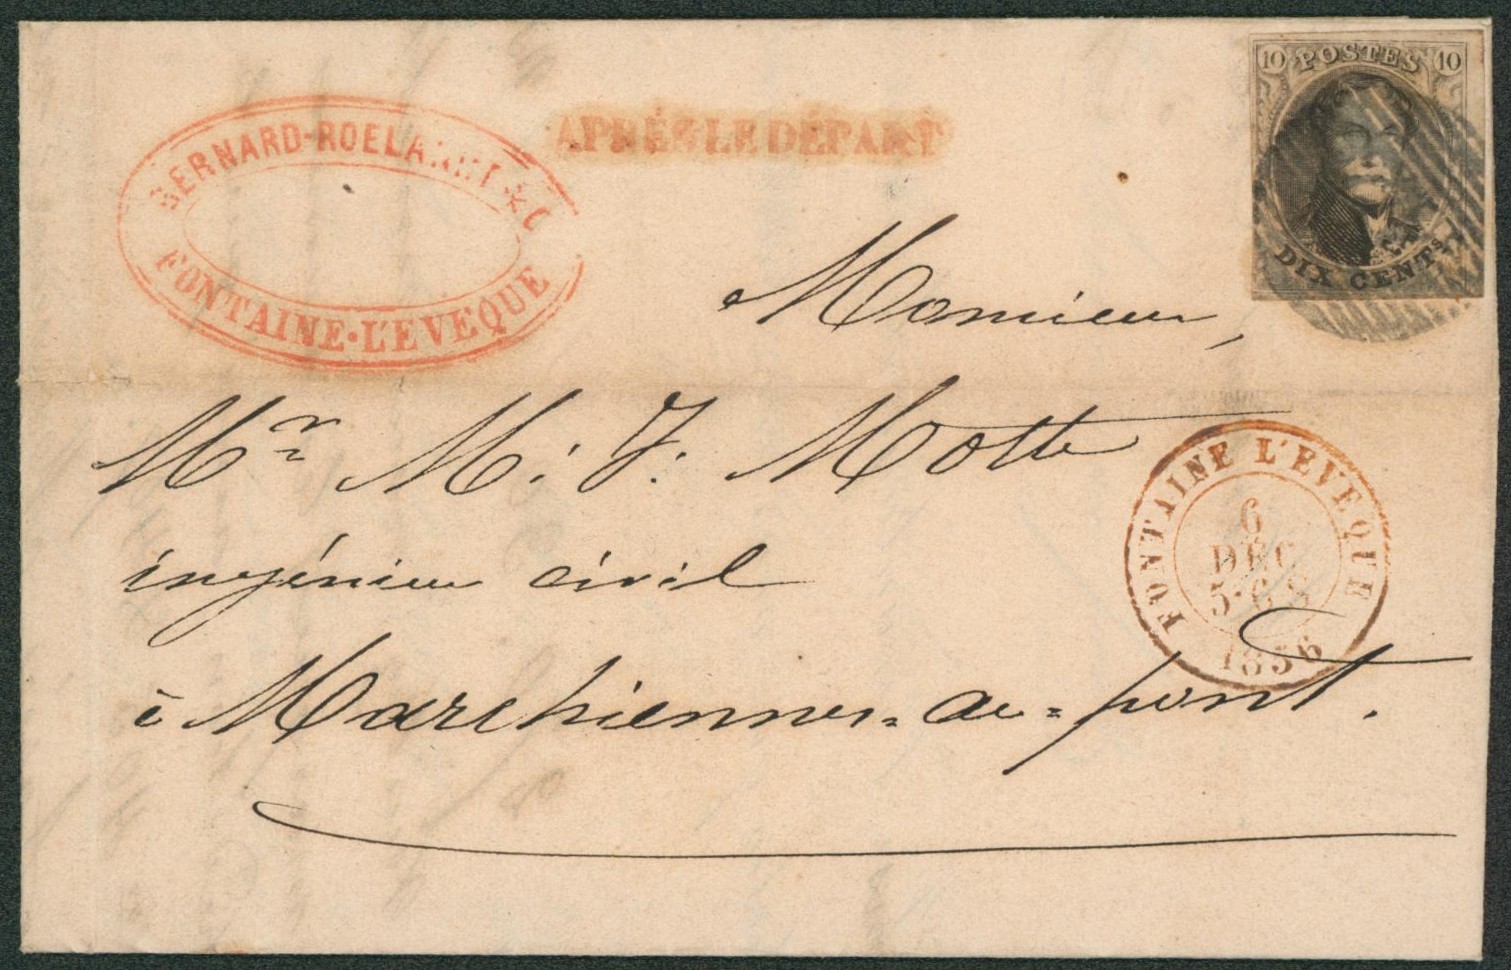 BERNARD-ROELANDT & C
FONTAINE-L'EVEQUE
APRÈS LE DÉPART
10 POSTES 10
DIX CENTS
Monsieur,
Mr M: J. Motte
ingénieur civil
à Marchiennes=au=pont.
FONTAINE L'EVEQUE
6
DEC
5-6 S
1856